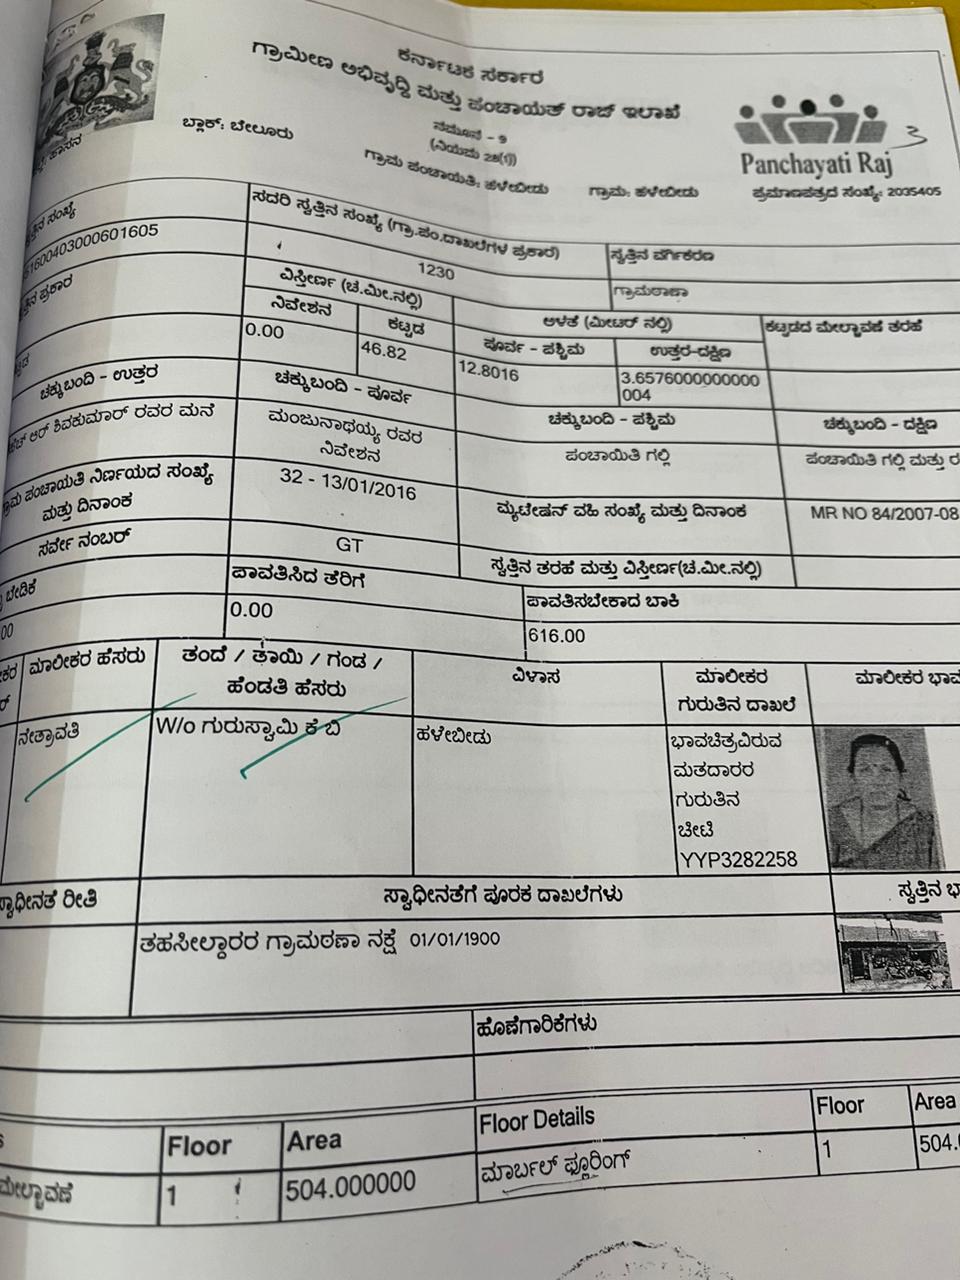 ಕರ್ನಾಟಕ ಸರ್ಕಾರ
ಗ್ರಾಮೀಣ ಅಭಿವೃದ್ಧಿ ಮತ್ತು ಪಂಚಾಯತ್ ರಾಜ್ ಇಲಾಖೆ
ನಮೂನೆ - 9
(ನಿಯಮ 28(1))
ಹಾಸನ ಬ್ಲಾಕ್: ಬೇಲೂರು ಗ್ರಾಮ ಪಂಚಾಯಿತಿ: ಹಳೇಬೀಡು ಗ್ರಾಮ: ಹಳೇಬೀಡು
Panchayati Raj
3
ಪ್ರಮಾಣಪತ್ರದ ಸಂಖ್ಯೆ: 2035405
ಸಂಖ್ಯೆ ಸದರಿ ಸ್ವತ್ತಿನ ಸಂಖ್ಯೆ (ಗ್ರಾ.ಪಂ.ದಾಖಲೆಗಳ ಪ್ರಕಾರ) ಸ್ವತ್ತಿನ ವರ್ಗೀಕರಣ
1600403000601605 1230 ಗ್ರಾಮಠಾಣಾ
ಪ್ರಕಾರ ವಿಸ್ತೀರ್ಣ (ಚ.ಮೀ.ನಲ್ಲಿ) ಅಳತೆ (ಮೀಟರ್ ನಲ್ಲಿ) ಕಟ್ಟಡದ ಮೇಲ್ಛಾವಣಿ ತರಹೆ
ನಿವೇಶನ ಕಟ್ಟಡ ಪೂರ್ವ - ಪಶ್ಚಿಮ ಉತ್ತರ-ದಕ್ಷಿಣ
0.00 46.82 12.8016 3.6576000000000
004
ಚಕ್ಕುಬಂದಿ - ಉತ್ತರ ಚಕ್ಕುಬಂದಿ - ಪೂರ್ವ ಚಕ್ಕುಬಂದಿ - ಪಶ್ಚಿಮ ಚಕ್ಕುಬಂದಿ - ದಕ್ಷಿಣ
ಆರ್ ಶಿವಕುಮಾರ್ ರವರ ಮನೆ ಮಂಜುನಾಥಯ್ಯ ರವರ ಪಂಚಾಯಿತಿ ಗಲ್ಲಿ ಪಂಚಾಯಿತಿ ಗಲ್ಲಿ ಮತ್ತು
ನಿವೇಶನ
ಪಂಚಾಯತಿ ನಿರ್ಣಯದ ಸಂಖ್ಯೆ 32 - 13/01/2016 ಮ್ಯುಟೇಷನ್ ವಹಿ ಸಂಖ್ಯೆ ಮತ್ತು ದಿನಾಂಕ MR NO 84/2007-08
ಮತ್ತು ದಿನಾಂಕ
ಸರ್ವೇ ನಂಬರ್ GT ಸ್ವತ್ತಿನ ತರಹೆ ಮತ್ತು ವಿಸ್ತೀರ್ಣ(ಚ.ಮೀ.ನಲ್ಲಿ)
ಬೇಡಿಕೆ ಪಾವತಿಸಿದ ತೆರಿಗೆ ಪಾವತಿಸಬೇಕಾದ ಬಾಕಿ
00 0.00 616.00
ಮಾಲೀಕರ ಹೆಸರು ತಂದೆ / ತಾಯಿ / ಗಂಡ / ವಿಳಾಸ ಮಾಲೀಕರ ಮಾಲೀಕರ ಭಾವ
ಹೆಂಡತಿ ಹೆಸರು ಗುರುತಿನ ದಾಖಲೆ
ನೇತ್ರಾವತಿ W/o ಗುರುಸ್ವಾಮಿ ಕೆ ಬಿ ಹಳೇಬೀಡು ಭಾವಚಿತ್ರವಿರುವ
ಮತದಾರರ
ಗುರುತಿನ
ಚೀಟಿ
YYP3282258
ಸ್ವಾಧೀನತೆ ರೀತಿ ಸ್ವಾಧೀನತೆಗೆ ಪೂರಕ ದಾಖಲೆಗಳು ಸ್ವತ್ತಿನ ಭಾ
ತಹಸೀಲ್ದಾರರ ಗ್ರಾಮಠಾಣಾ ನಕ್ಷೆ 01/01/1900
ಹೊಣೆಗಾರಿಕೆಗಳು
s Floor Area Floor Details Floor Area
ಮೇಲ್ಛಾವಣಿ 1 504.000000 ಮಾರ್ಬಲ್ ಫ್ಲೂರಿಂಗ್ 1 504.